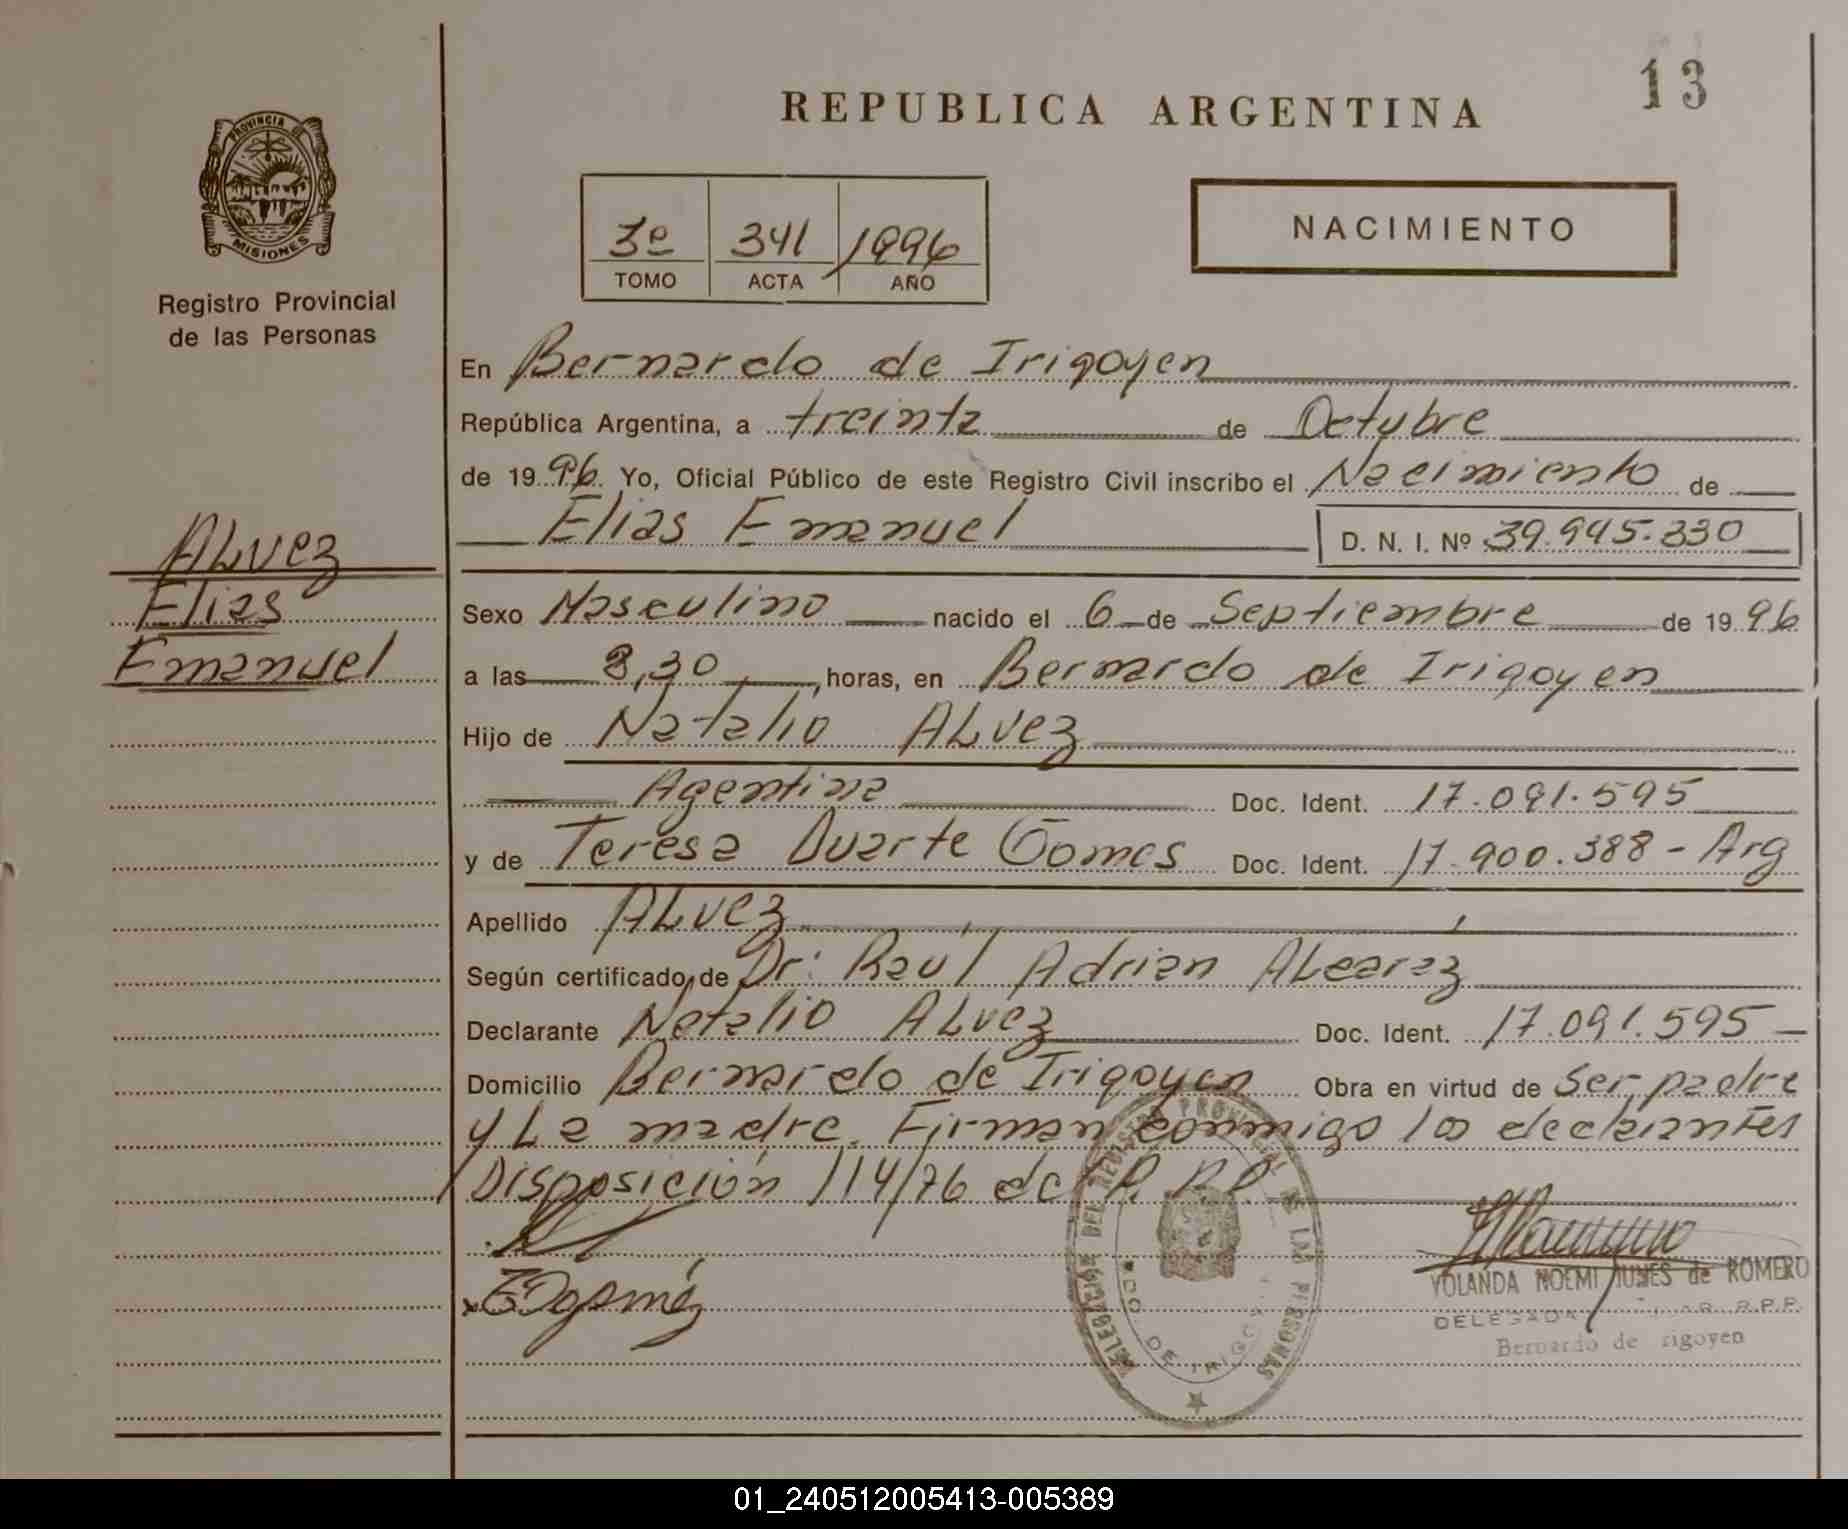 13
REPUBLICA ARGENTINA
PROVINCIA DE
MISIONES
Registro Provincial
de las Personas
3º 341 1996
TOMO ACTA AÑO
NACIMIENTO
En Bernardo de Irigoyen
República Argentina, a treinta de Octubre
de 1996. Yo, Oficial Público de este Registro Civil inscribo el Nacimiento de
Elias Emanuel D. N. I. Nº 39.945.330
ALvez
Elias
Emanuel
Sexo Masculino nacido el 6 de Septiembre de 1996
a las 8,30, horas, en Bernardo de Irigoyen
Hijo de Natalio ALvez
Agentina Doc. Ident. 17.091.595
y de Teresa Duarte Gomes Doc. Ident. 17.900.388 - Arg
Apellido ALvez
Según certificado de Dr: Raúl Adrian ALcaraz
Declarante Natalio ALvez Doc. Ident. 17.091.595
Domicilio Bernardo de Irigoyen Obra en virtud de ser padre
y La madre. Firman conmigo los declarantes
Disposición 114/76 de R.P.P.
DELEGACION DEL REGISTRO PROVINCIAL DE LAS PERSONAS
BDO. DE IRIGOYEN
YOLANDA NOEMI NUNES de ROMERO
DELEGADA TITULAR R.P.P.
Bernardo de Irigoyen
01_240512005413-005389